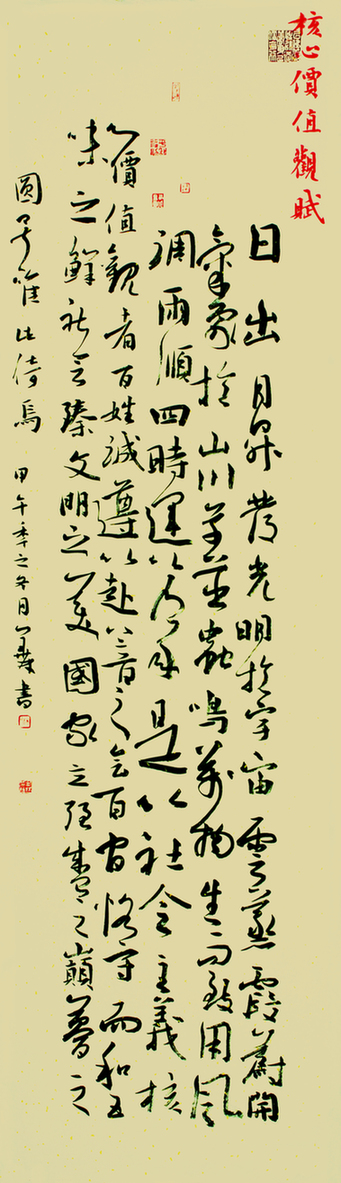 核心價值觀賦
日出月昇發光明於宇宙雲蒸霞蔚開
氣象於山川草茁蟲鳴萬物生而致用風
調雨順四時運以有序是以社會主義核
心價值觀者百姓誠遵以赴八音之會百官恪守而和五
味之鮮社會臻文明之美國家立強盛之巔夢之
圓乎唯此倚焉 甲午季之冬月 書